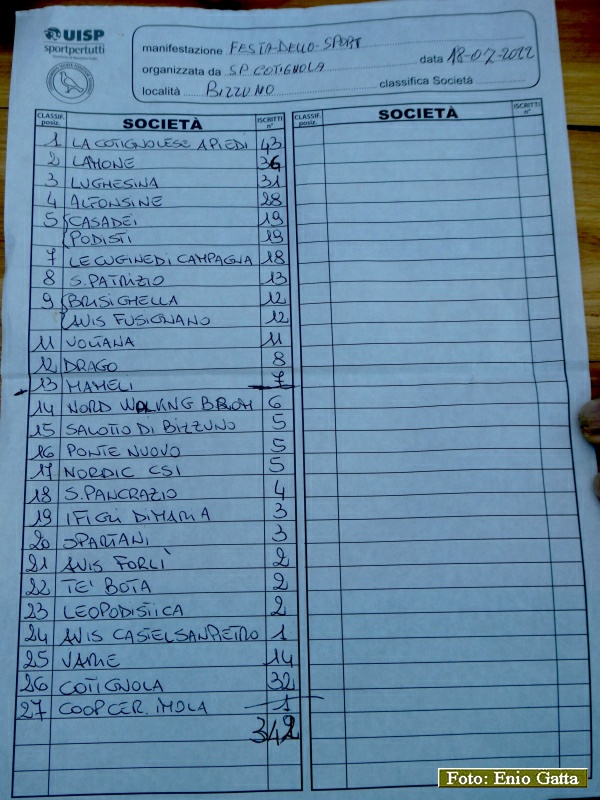 UISP
sportpertutti
manifestazione FESTA-DELLO-SPORT
organizzata da S P COTIGNOLA data 18-07-2022
località BIZZUNO classifica Società
CLASSIF. posiz. SOCIETÀ ISCRITTI n° CLASSIF. posiz. SOCIETÀ ISCRITTI n°
1 LA COTIGNOLESE A PIEDI 43
2 LAMONE 36
3 LUGHESINA 31
4 ALFONSINE 28
5 CASADEI 19
PODISTI 19
7 LE CUGINE DI CAMPAGNA 18
8 S. PATRIZIO 13
9 BRISIGHELLA 12
AVIS FUSIGNANO 12
11 VOLTANA 11
12 DRAGO 8
13 MAMELI 7
14 NORD WALKING 6
15 SALOTTO DI BIZZUNO 5
16 PONTE NUOVO 5
17 NORDIC CSI 5
18 S. PANCRAZIO 4
19 I FIGLI DI MARIA 3
20 SPARTANI 3
21 AVIS FORLÌ 2
22 TE' BOTA 2
23 LEOPODISTICA 2
24 AVIS CASTELSANPIETRO 1
25 VARIE 14
26 COTIGNOLA 32
27 COOP CER. IMOLA 1
342
Foto: Enio Gatta